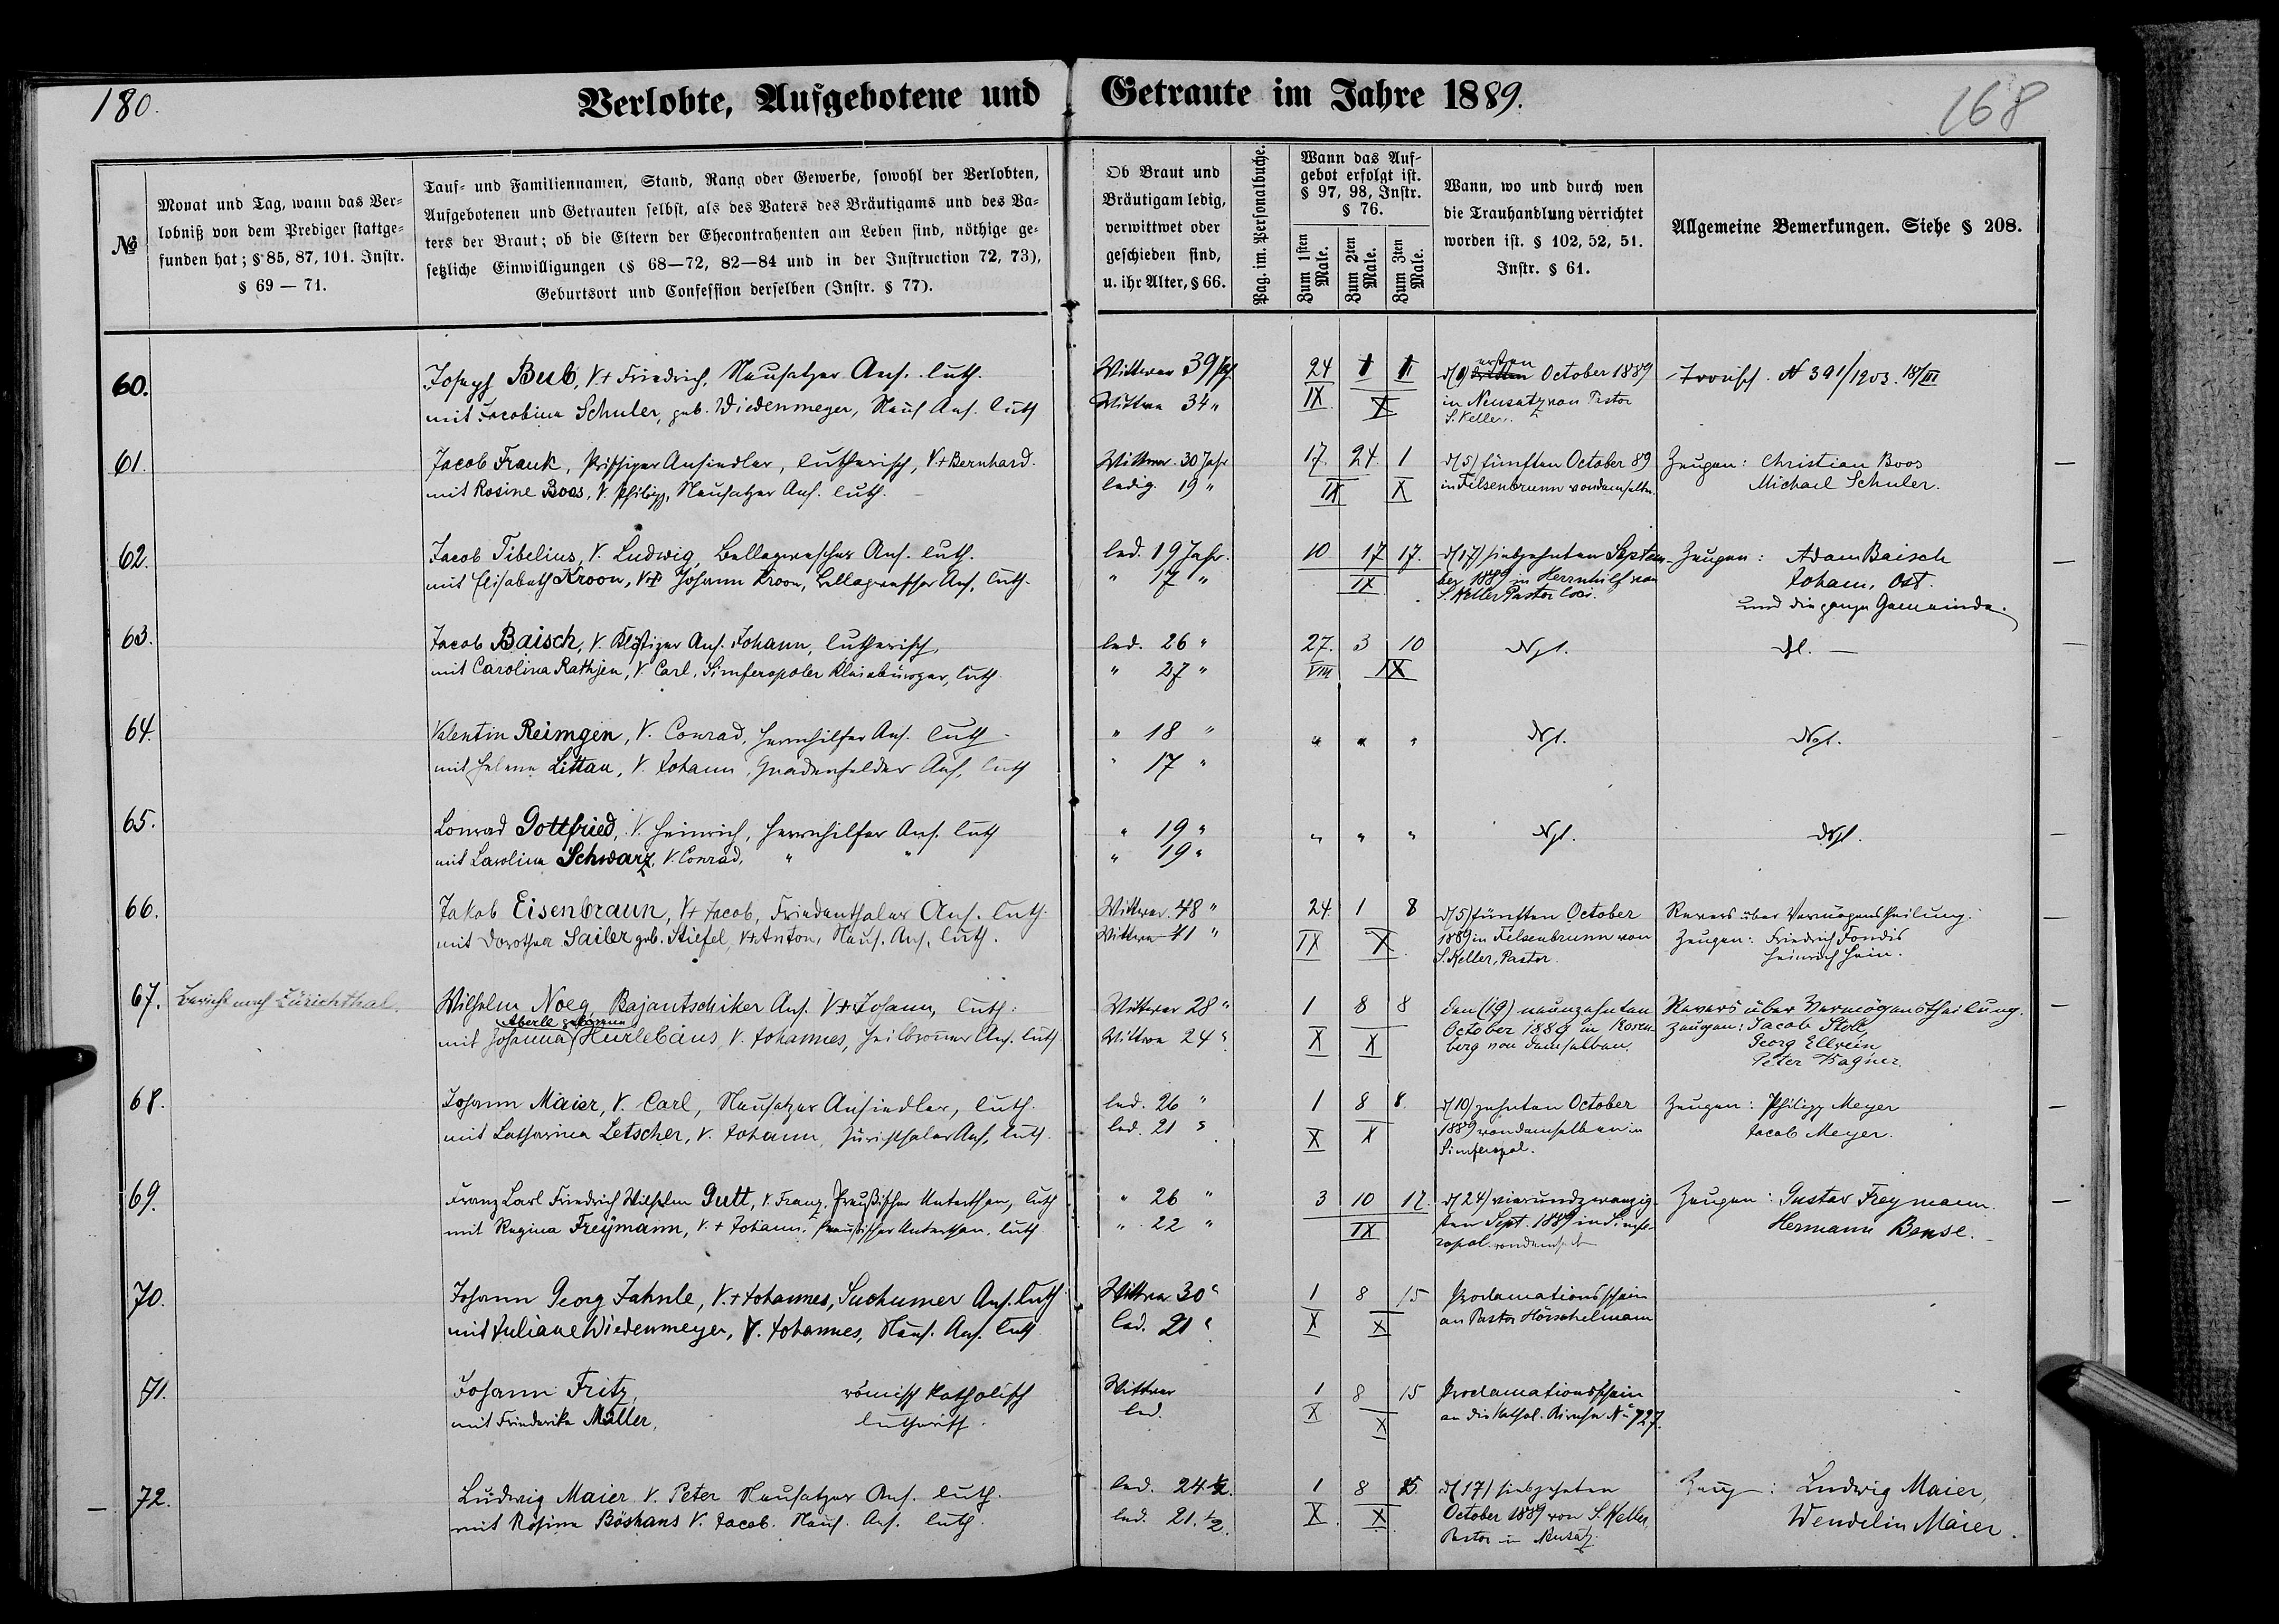 180.
Verlobte, Aufgebotene und Getraute im Jahre 1889.
168
№
Monat und Tag, wann das Ver-
lobniß von dem Prediger stattge-
funden hat; § 85, 87, 101. Instr.
§ 69 — 71.
Tauf- und Familiennamen, Stand, Rang oder Gewerbe, sowohl der Verlobten,
Aufgebotenen und Getrauten selbst, als des Vaters des Bräutigams und des Va-
ters der Braut; ob die Eltern der Ehecontrahenten am Leben sind, nöthige ge-
setzliche Einwilligungen (§ 68—72, 82—84 und in der Instruction 72, 73),
Geburtsort und Confession derselben (Instr. § 77).
Ob Braut und
Bräutigam ledig,
verwittwet oder
geschieden sind,
u. ihr Alter, § 66.
Pag. im. Personalbuche.
Wann das Auf-
gebot erfolgt ist.
§ 97, 98, Instr.
§ 76.
Zum 1sten Male.
Zum 2ten Male.
Zum 3ten Male.
Wann, wo und durch wen
die Trauhandlung verrichtet
worden ist. § 102, 52, 51.
Instr. § 61.
Allgemeine Bemerkungen. Siehe § 208.
60.
Joseph Bub, V.+ Friedrich, Neusatzer Ans. luth.
mit Jacobina Schuler, geb. Wiedenmeyer, Neus. Ans. luth
Wittwer 39
Wittwe 34 "
24 1
IX X
d(1) ersten October 1889
in Neusatz von Pastor
S. Keller.
N 391/1903. 18/III
61.
Jacob Frank, Ansiedler, lutherisch, V.+ Bernhard.
mit Rosine Boos, V. Philipp, Neusatzer Ans. luth.
Wittwer. 30 Jahr
ledig. 19 "
17. 24. 1
IX X
d(5) fünften October 89
in Felsenbrunn von demselben.
Zeugen: Christian Boos
Michael Schuler.
62.
Jacob Tibelius, V. Ludwig, Ans. luth.
mit Elisabeth Kroon, V+ Johann Kroon, Ans. luth.
led. 19 Jahr.
" 17 "
10 17 17.
IX
d(17) siebzehnten Septem-
ber 1889 in Herrnhilf von
S. Keller Pastor loci.
Zeugen: Adam Baisch
Johann Ost.
und die ganze Gemeinde.
63.
Jacob Baisch, V. Ans. Johann, lutherisch,
mit Carolina Rathjen, V. Carl, Simferopoler Kleinbürger, luth.
led. 26 "
" 27 "
27. 3 10
VIII IX
64.
Valentin Reimgen, V. Conrad, Herrnhilfer Ans. luth.
mit Helena Littau, V. Johann, Gnadenfelder Ans. luth
" 18 "
" 17 "
" " "
65.
Conrad Gottfried, V. Heinrich, Herrnhilfer Ans. luth
mit Carolina Schwarz, V. Conrad, " "
" 19 "
" 19 "
" " "
66.
Jakob Eisenbraun, V+ Jacob, Friedenthaler Ans. luth.
mit Dorothea Sailer geb. Stiefel, V+ Anton, Neus. Ans. luth.
Wittwer. 48 "
Wittwe 41 "
24. 1 8
IX X
d(5) fünften October
1889 in Felsenbrunn von
S. Keller, Pastor.
Revers über Vermögenstheilung.
Zeugen: Friedrich Fondis
Heinrich Hein.
67.
Bericht nach Zürichthal.
Wilhelm Noeg, Bajantschiker Ans. V+ Johann, luth.
Aberle geborene
mit Johanna Hurlebaus V. Johannes, Heilbronner Ans. luth.
Wittwer 28 "
Wittwe 24 "
1 8 8
X X
den (19) neunzehnten
October 1889 in Rosen-
berg von demselben.
Revers über Vermögenstheilung.
Zeugen: Jacob Stolz
Georg Ellwein
Peter Wagner.
68.
Johann Maier, V. Carl, Neusatzer Ansiedler, luth.
mit Catharina Letscher, V. Johann, Zürichthaler Ans. luth.
led. 26 "
led. 21 "
1 8 8.
X X
d(10) zehnten October
1889 von demselben in
Simferopol.
Zeugen: Philipp Meyer
Jacob Meyer.
69.
Franz Carl Friedrich Wilhelm Gutt, V. Franz, Preußischer Unterthan, luth
mit Regina Freymann, V.+ Johann, Preußischer Unterthan, luth
" 26 "
" 22 "
3 10 17.
IX
d(24) vierundzwanzig-
sten Sept. 1889 in Simfe-
ropol von demselb
Zeugen: Gustav Freymann.
Hermann Bense.
70.
Johann Georg Jahnle, V.+ Johannes, Suchumer Ans. luth
mit Juliane Wiedenmeyer, V. Johannes, Neus. Ans. luth
Wittwer 30 "
led. 21 "
1 8 15
X X
Proclamationsschein
an Pastor Hörschelmann
71.
Johann Fritz, römisch katholisch
mit Friederike Müller, lutherisch.
Wittwer
led.
1 8 15
X X
Proclamationsschein
an die kathol. Kirche № 727.
72.
Ludwig Maier V. Peter Neusatzer Ans. luth.
mit Rosina Böshans V. Jacob. Neus. Ans. luth.
led. 24 ½.
led. 21. ½.
1 8 15
X X
d(17) siebzehnten
October 1889 von S. Keller,
Pastor in Neusatz.
Zeug: Ludwig Maier,
Wendelin Maier.